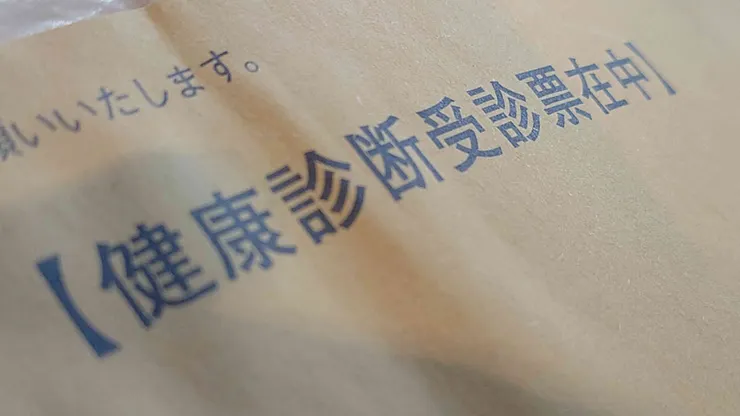 願いいたします。
【健康診断受診票在中】